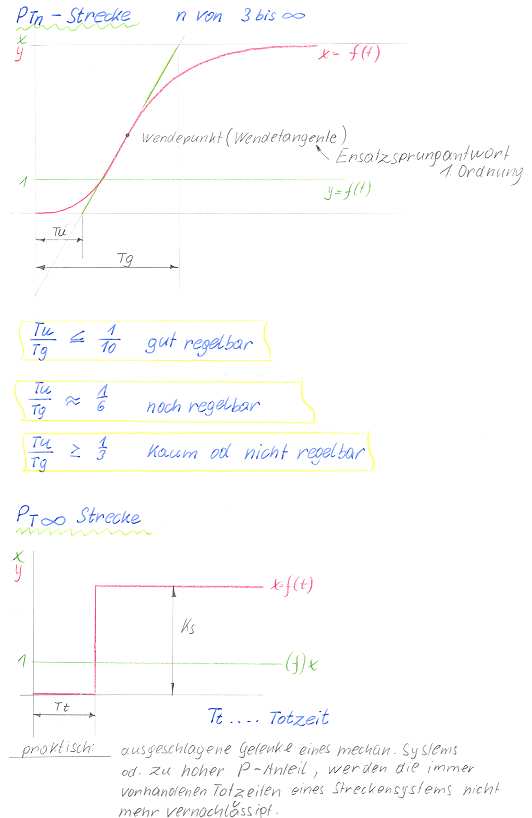 PTn - Strecke n von 3 bis ∞
x
y
x = f(t)
Wendepunkt (Wendetangente)
Ersatzsprungantwort
1. Ordnung
1
y = f(t)
Tu
Tg
Tu/Tg ≤ 1/10 gut regelbar
Tu/Tg ≈ 1/6 noch regelbar
Tu/Tg ≥ 1/3 kaum od nicht regelbar
PT∞ Strecke
x
y
x=f(t)
Ks
1
(f)x
Tt
Tt .... Totzeit
praktisch: ausgeschlagene Gelenke eines mechan. Systems
od. zu hoher P-Anteil, werden die immer
vorhandenen Totzeiten eines Streckensystems nicht
mehr vernachlässigt.